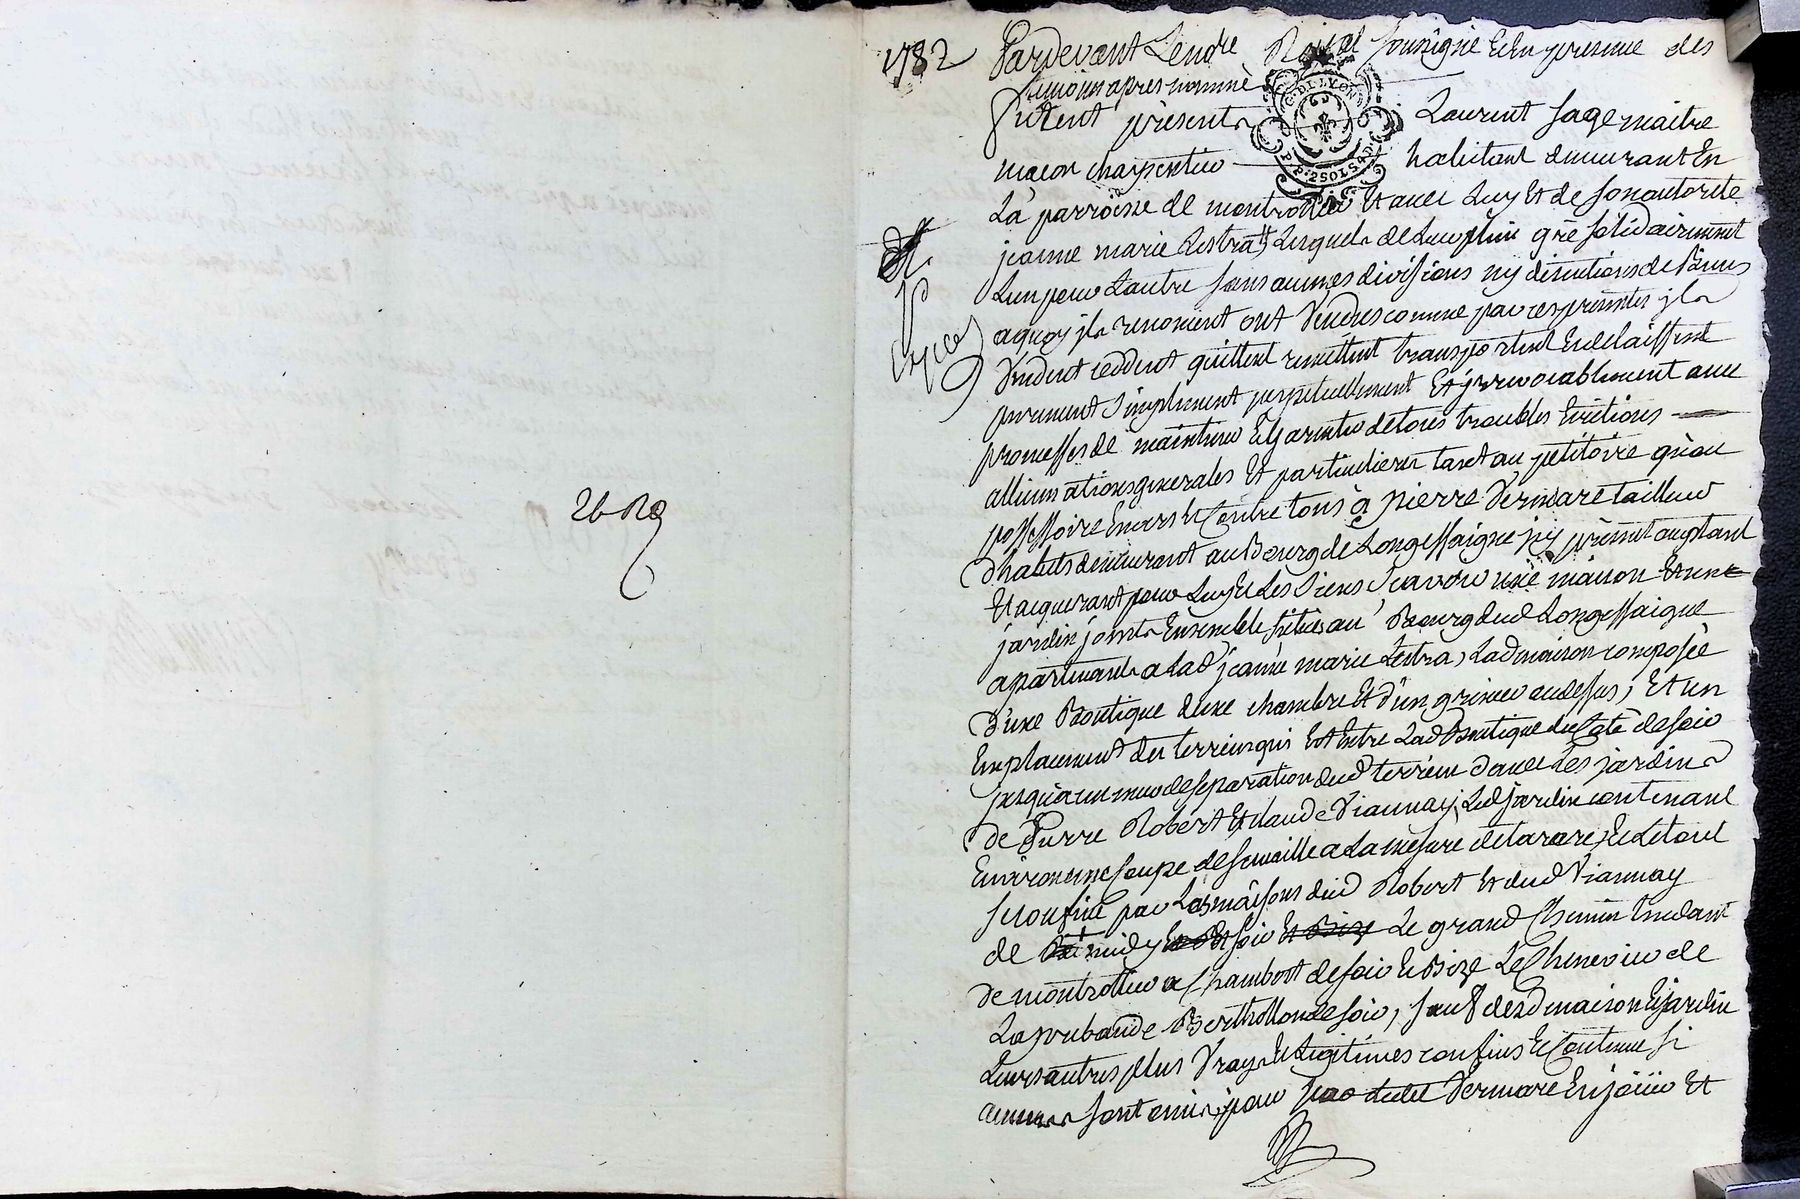 1782
Pardevant Le no.re Royal soussigné et en presence des
temoins apres nommé
furent présents
G. DE LYON
P. P. 2 SOLS 4 D.
Laurent Sage maitre
macon charpentier habitant demeurant en
La parroisse de montrottier et avec Luy et de son autorité
jeanne marie Lestra, Lesquels de Leur plein gré solidairement
L'un pour L'autre sans aucunes divisions ny discutions de biens
a quoy ils renoncent ont Vendus comme par ces presentes ils
Vendent ceddent quittent remettent transportent et delaissent
purement simplement perpetuellement et irrevocablement avec
promesses de maintenir et garantir de tous troubles evictions
allienations generales et particulieres tant au petitoire qu'au
possessoire envers et Contre tous à pierre Vermare tailleur
d'habits demeurant au Bourg de Longessaigne icy présent acceptant
et acquerant pour Luy et Les Siens Scavoir une maison et une
jardin joints Ensemble situés au Bourg dud Longessaigne
apartenants a Lad jeanne marie Lestra, Lad maison composée
d'une Boutique d'une chambre et d'un grenier au dessus, et un
Emplacement du terrein qui est Entre Lad Boutique du Coté de soir
jusqu'a un mur de separation dud terrein d'avec Les jardins
de Pierre Robert et claude Viannay, Led jardin contenant
Environ une Coupe de semaille a La mesure de tarare, et Le tout
se confine par Les maisons dud Robert et dud Viannay
de midy et soir et Bize Le grand Chemin tendant
de montrottier a Chambost de soir et Bize Le Chenevier de
La prebande Berthollon de soir, sauf desd maison et jardin
Leurs autres plus Vrays et Legitimes confins et Contenue si
aucuns sont omis, pour par ledit Vermare en jouir et
Exped